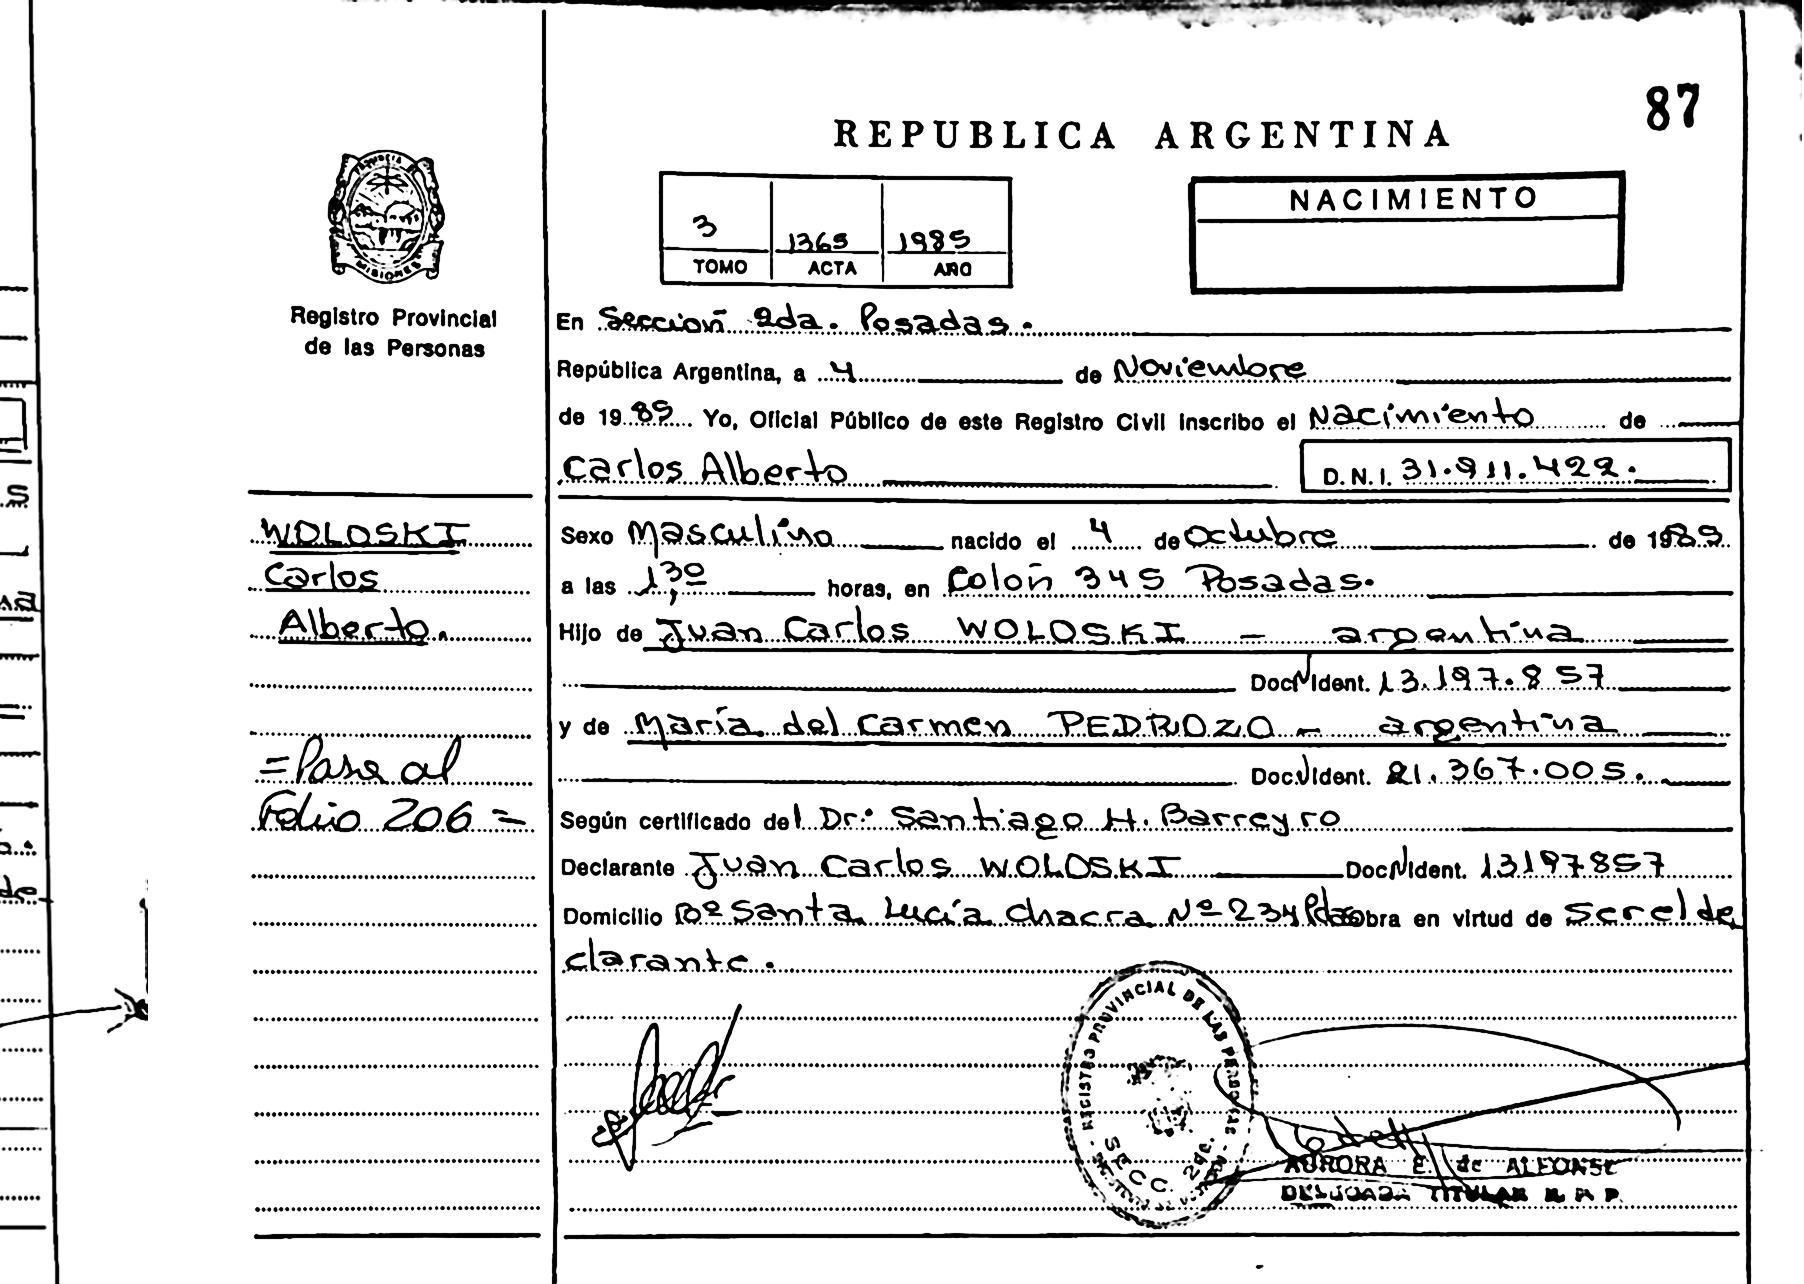 87
REPUBLICA ARGENTINA
NACIMIENTO
3 1365 1985
TOMO ACTA AÑO
MISIONES
Registro Provincial
de las Personas
En Sección 2da. Posadas.
República Argentina, a 4 de Noviembre
de 1985 Yo, Oficial Público de este Registro Civil inscribo el Nacimiento de
Carlos Alberto D.N.I. 31.911.422.
WOLOSKI
Carlos
Alberto.
=Pase al
Folio 206=
Sexo Masculino nacido el 4 de Octubre de 1985
a las 1,30 horas, en Colón 345 Posadas.
Hijo de Juan Carlos WOLOSKI - argentina
Doc N Ident. 13.197.857
y de María del Carmen PEDROZO - argentina
Doc. Ident. 21.367.005.
Según certificado del Dr. Santiago H. Barreyro
Declarante Juan Carlos WOLOSKI Doc N Ident. 13197857
Domicilio Bº Santa Lucía Chacra Nº 234 Pdas obra en virtud de ser el de
clarante.
REGISTRO PROVINCIAL DE LAS PERSONAS
SECC. 2da.
AURORA E. de ALFONSE
DELEGADA TITULAR R. P. P.